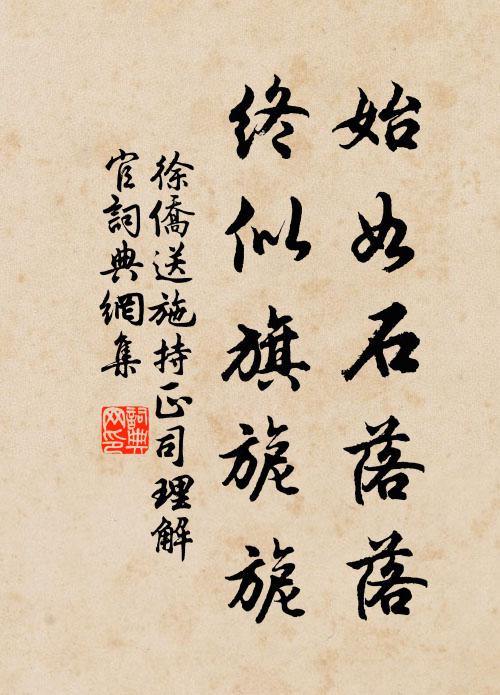 始如石落落
終似旗旎旎
徐僑送施持正司理解
官詞典網集
詞典
网印